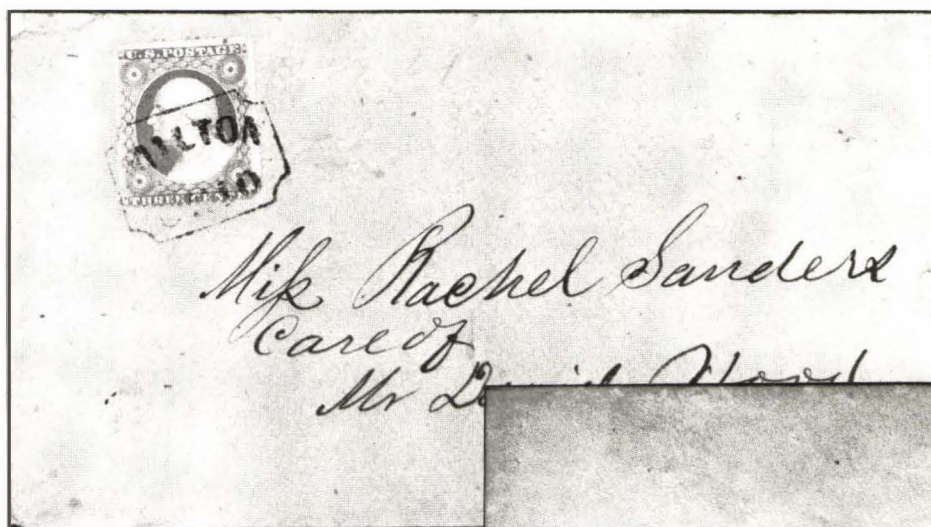 U.S. POSTAGE
THREE CENTS
Miss Rachel Sanders
Care of
Mr